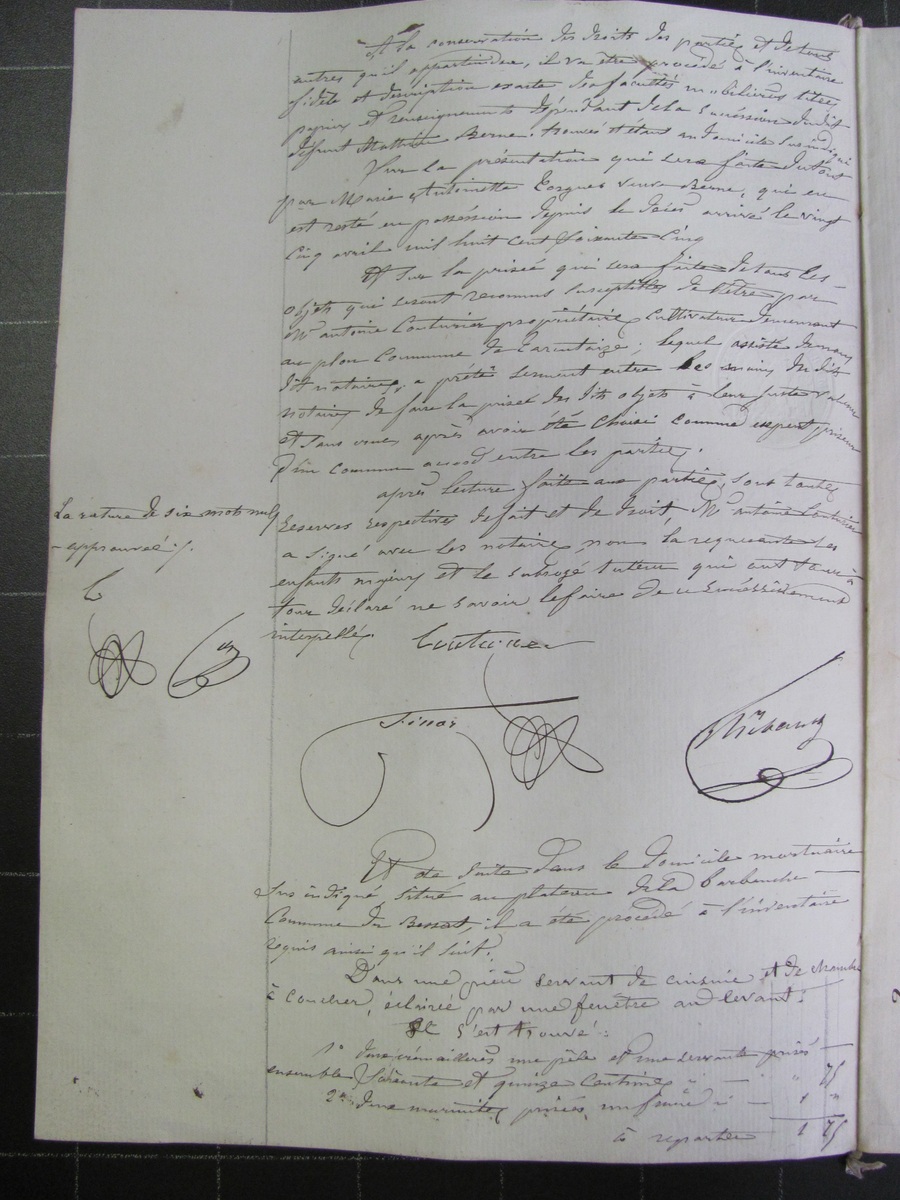 A la conservation des droits des parties et de tous
autres qu'il appartiendra, il va être procédé à l'inventaire
fidèle et description exacte des facultés mobilières titres
papiers et renseignements dépendant de la succession dudit
défunt Mathieu Berne, trouvés et étant au domicile susindiqué
Sur la présentation qui sera faite du tout
par Marie Antoinette veuve Berne, qui en
est resté en possession depuis le décès arrivé le vingt
cinq avril mil huit cent soixante cinq
Et sur la prisée qui sera faite de tous les
objets qui seront reconnus susceptibles de l'être par
Mr antoine Couturier propriétaire cultivateur demeurant
au plon Commune de Tarentaize, lequel assisté de nous
dits notaires, a prêté serment entre les mains des dits
notaires de faire la prisée des dits objets à leur juste valeur
et sans crue, après avoir été choisi comme expert priseur
d'un commun accord entre les parties.
après lecture faite aux parties, sous toutes
réserves respectives de fait et de droit Mr antoine Couturier
a signé avec les notaires, non la requérante les
enfants majeurs et le subrogé tuteur qui ont tour à
tour déclaré ne savoir le faire de ce successivement
interpellés.
La rature de six mots nuls
approuvée /.
Couturier
Finaz
Thibaud
Et de suite dans le domicile mortuaire
sus indiqué, situé au plateau de la barbanche
Commune du Bessat, il a été procédé à l'inventaire
requis ainsi qu'il suit.
Dans une pièce servant de cuisine et de chambre
à coucher, éclairée par une fenêtre au levant :
Il s'est trouvé :
1° deux crémaillères une pèle et une servante prisés
ensemble soixante et quinze centimes " 75
2° une marmite, prisée un franc 1 "
à reporter 1 75